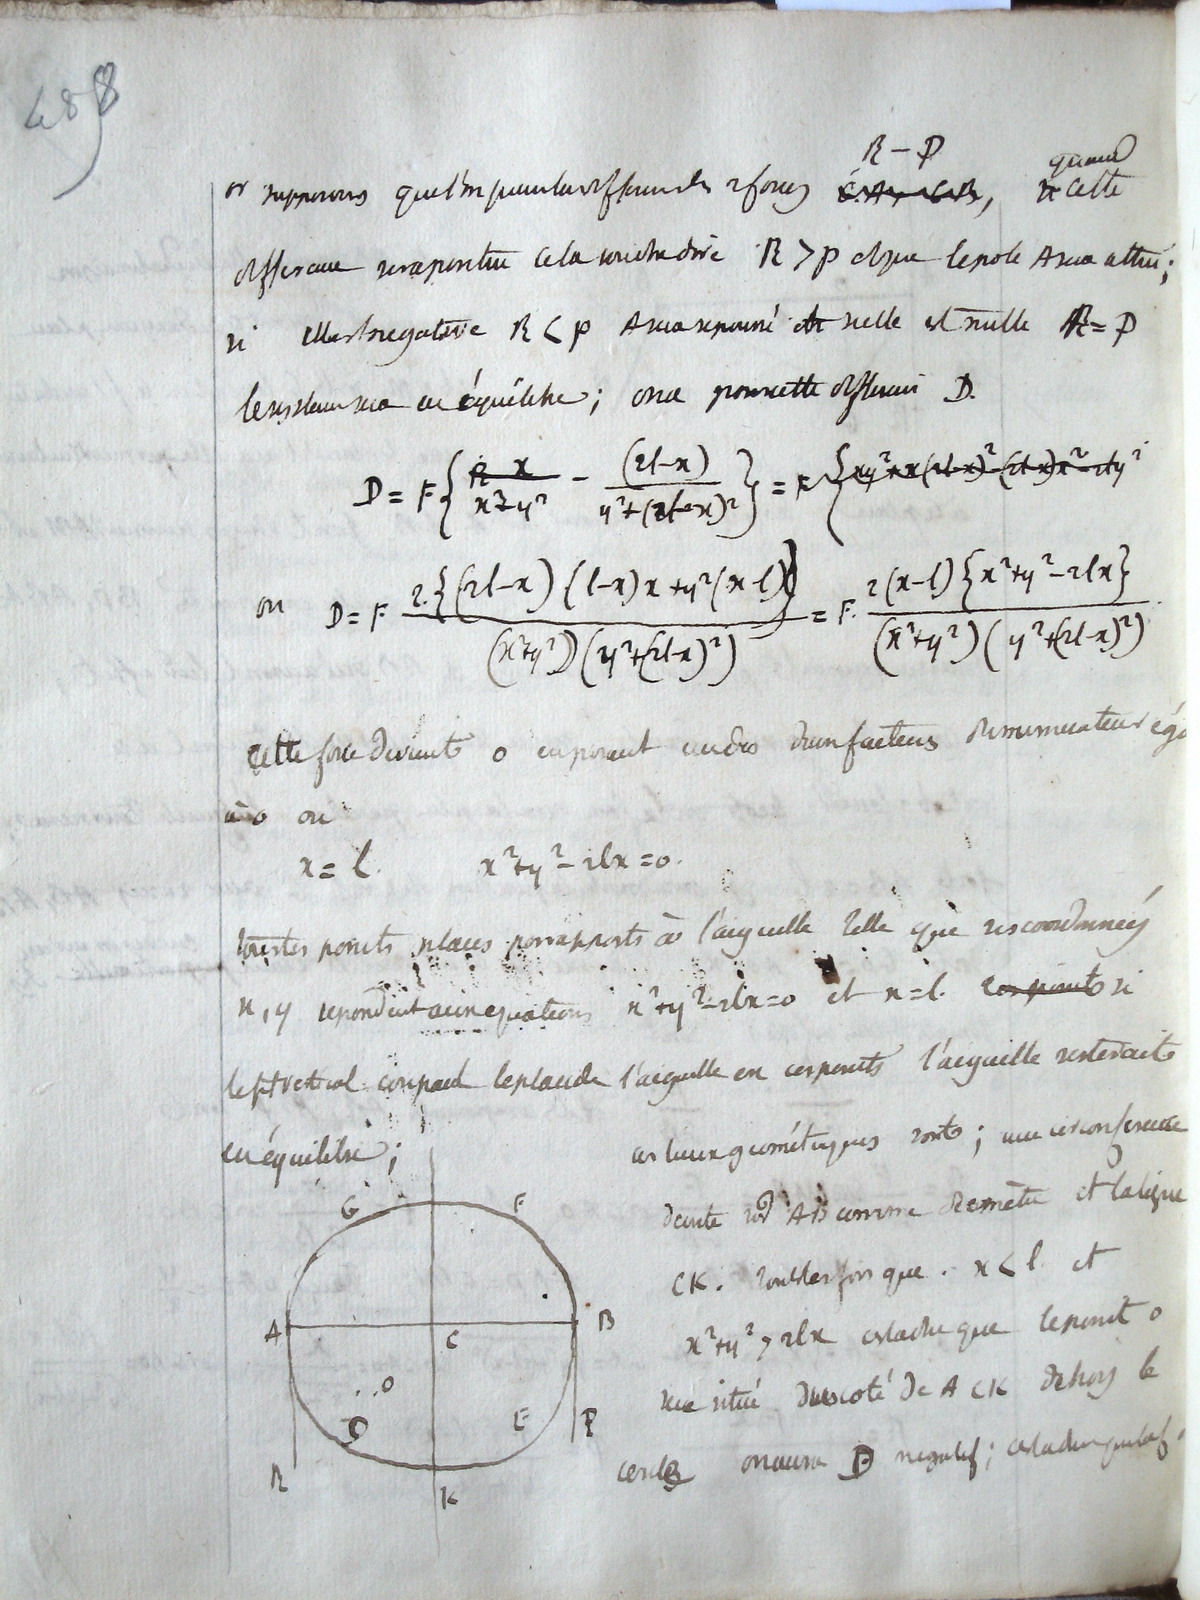 488
R - P quand
or supposons que l'on prenne la difference des 2 forces C.A, C.B, si cette
difference sera positive cela voudra dire R > p et que le pole A sera attiré;
si elle est negative R < p A sera repoussé et si elle est nulle R = P
le systeme sera en équilibre; on a pour cette difference D.
D = F { x / x²+y² - (2l-x) / y²+(2l-x)² } = F { xy²+x(2l-x)²-(2l-x)x²-2ly²
ou D = F. 2.{(2l-x)(l-x)x+y²(x-l)} / (x²+y²)(y²+(2l-x)²) = F. 2(x-l){x²+y²-2lx} / (x²+y²)(y²+(2l-x)²)
cette force devient 0 en posant un des deux facteurs du numerateur éga
à 0 ou
x = l. x²+y²-2lx = 0.
tous les points placés par rapports à l'aiguille telle que ses coordonnées
x, y repondent aux equations x²+y²-2lx=0 et x=l. ces points si
le fil vertical coupait le plan de l'aiguille en ces points l'aiguille resterait
en équilibre; ces lieux géométriques sont; une circonference
decrite sur AB comme diametre et la ligne
CK. toutes les fois que. x < l et
x²+y² > 2lx c'est a dire que le point O
sera situé du coté de A CK dehors le
cercle on aura D negatif; c'est a dire que
G F
A C B
O
D E P
R K